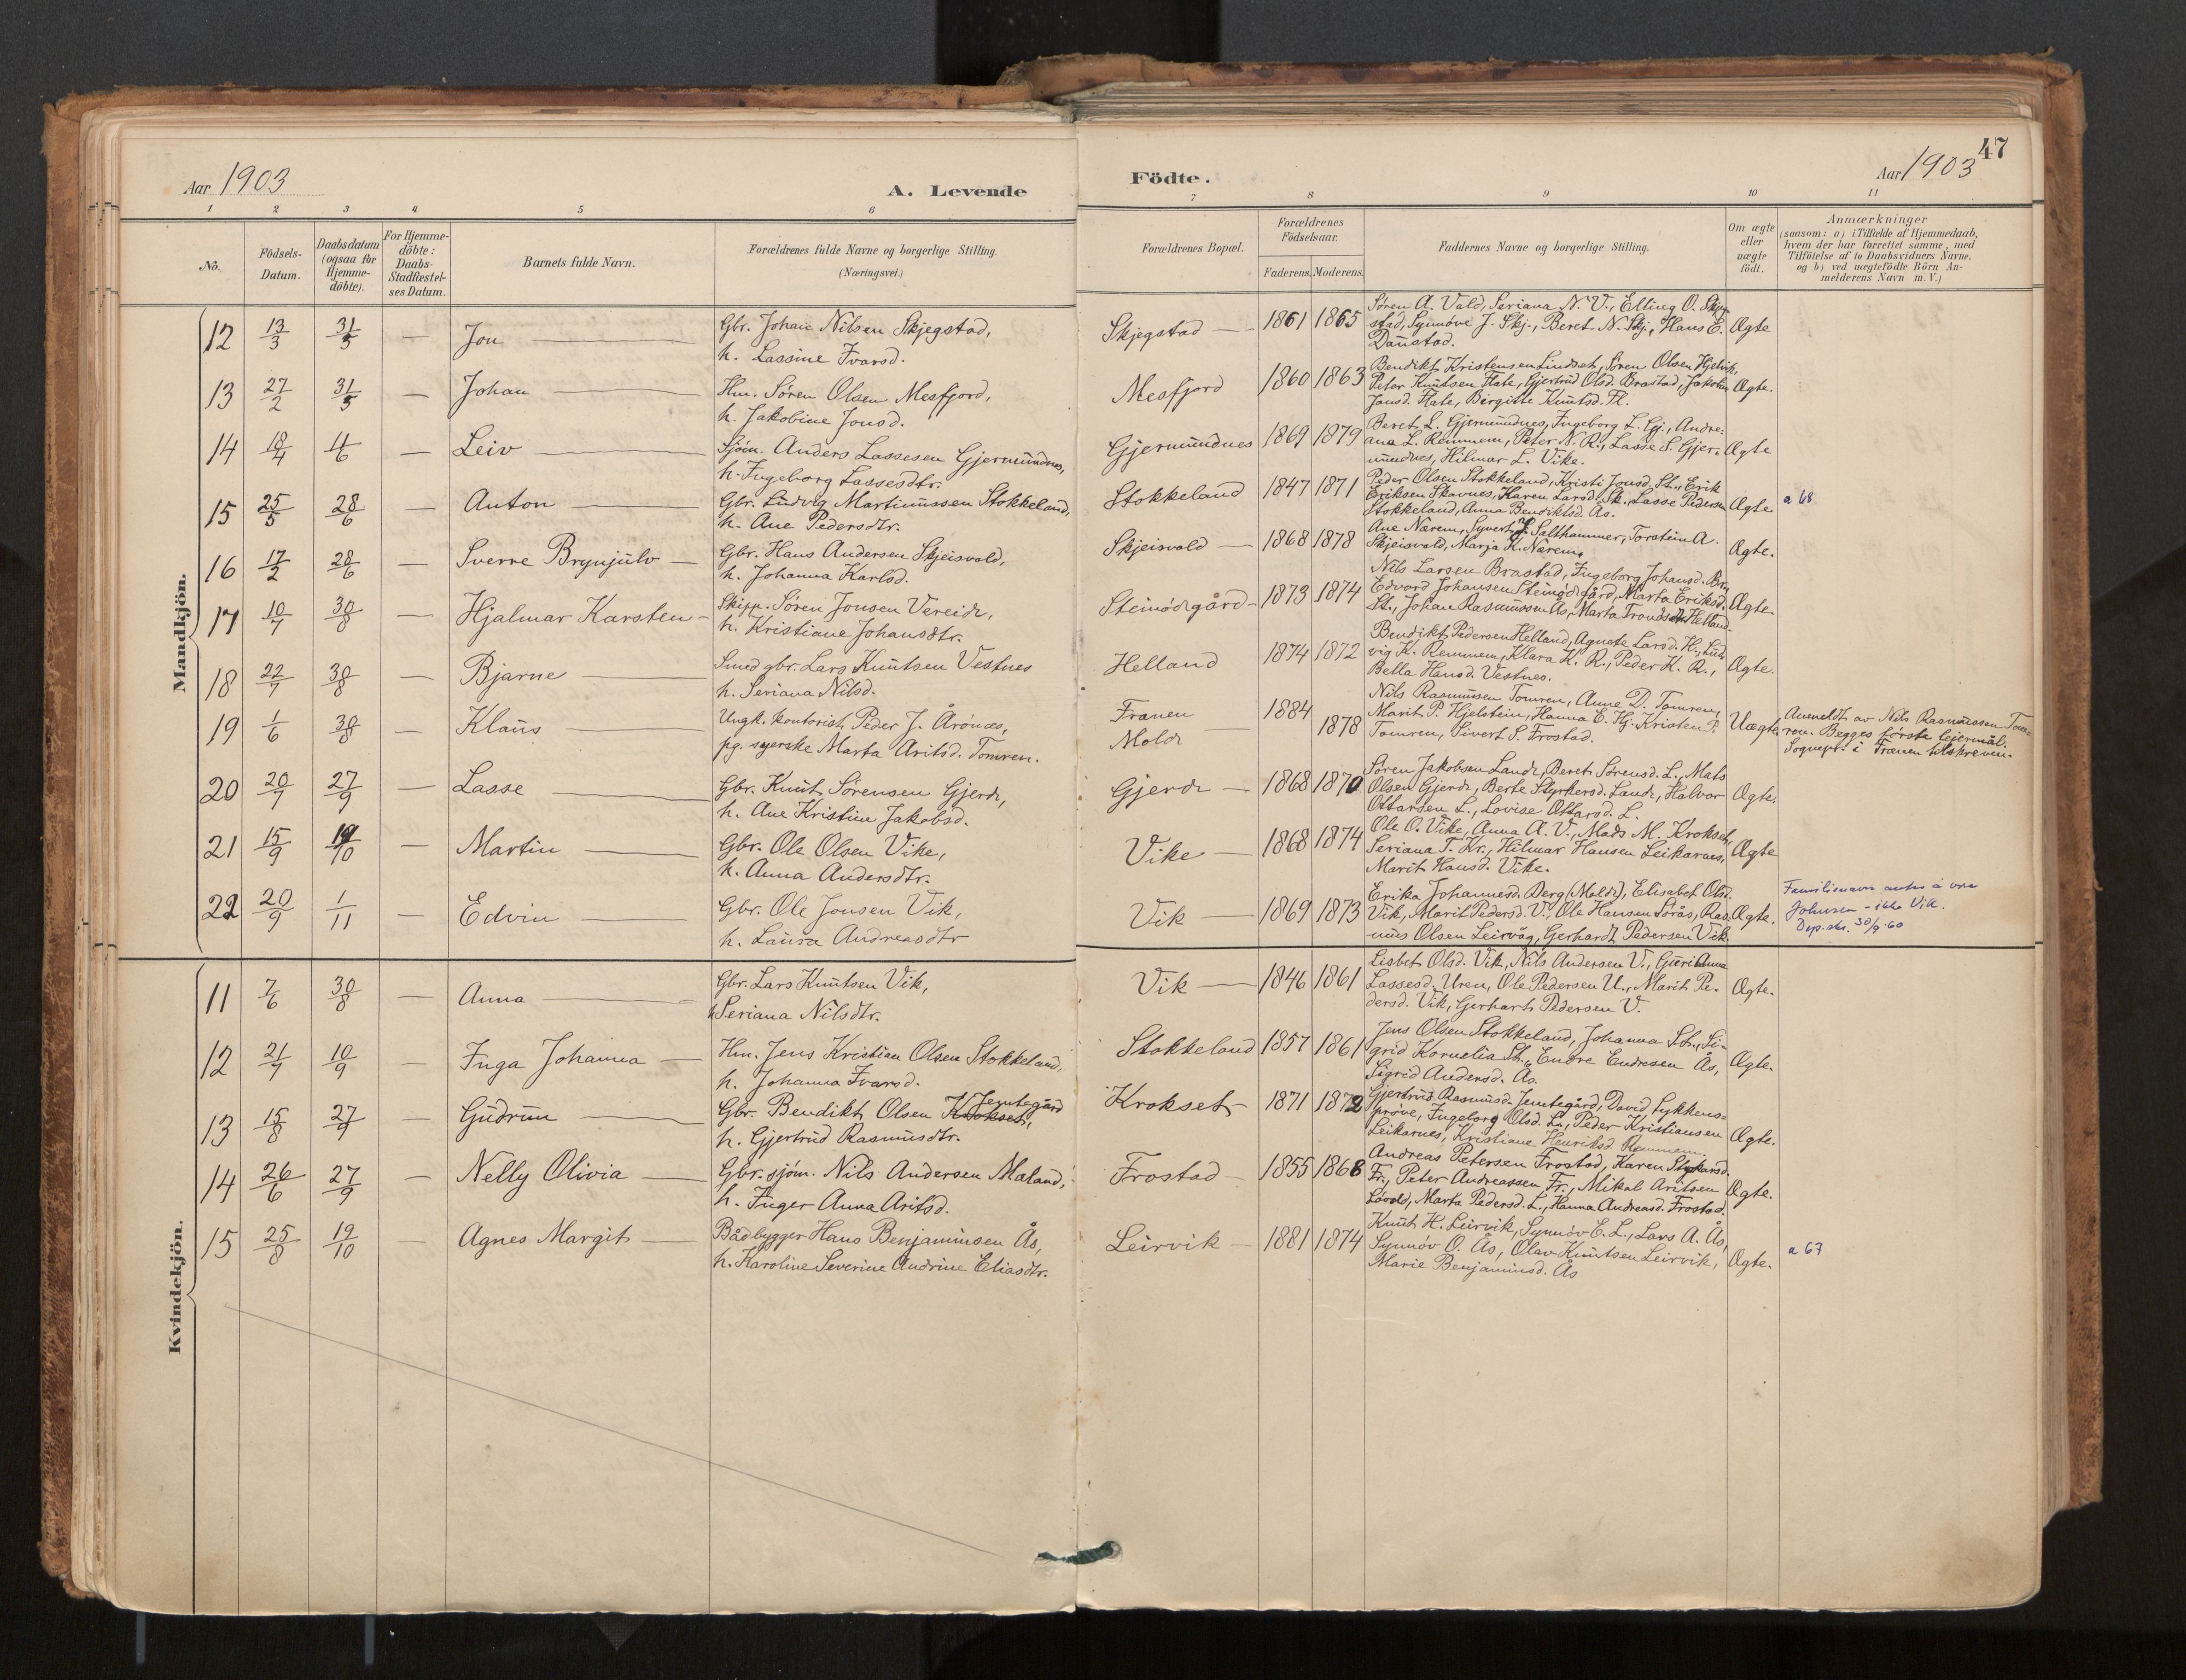 Aar 1903
A. Levende
Födte.
Aar 1903
47
1 2 3 4 5 6 7 8 9 10 11
No.
Födsels-Datum.
Daabsdatum (ogsaa för Hjemme-döbte).
For Hjemme-döbte: Daabs-Stadfæstel-ses Datum.
Barnets fulde Navn.
Forældrenes fulde Navne og borgerlige Stilling.
(Næringsvei.)
Forældrenes Bopæl.
Forældrenes Födselsaar.
Faderens. Moderens.
Faddernes Navne og borgerlige Stilling.
Om ægte eller uægte födt.
Anmærkninger
(saasom: a) i Tilfælde af Hjemmedaab,
hvem der har forrettet samme, med
Tilföielse af to Daabsvidners Navne,
og b) ved uægtefödte Börn An-
melderens Navn m.V.)
Mandkjön.
12 13/3 31/5 — Jon — Gbr. Johan Nilsen Skjegstad,
h. Lassine Ivarsd.
Skjegstad — 1861 1865
Søren A. Vold, Seriana N. V., Elling O. Skjeg-
stad, Synnöve J. Skj., Beret N. Skj., Hans E.
Ægte
13 27/2 31/5 — Johan — Hm. Søren Olsen Mesfjord,
h. Jakobine Jonsd.
Mesfjord 1860 1863
Bendikt Kristensen Lindset, Søren Olsen Hjelvik,
Peter Knutsen Flate, Gjertrud Olsd. Brastad, Jakobine
Jonsd. Flate, Birgitte Knutsd. Fl.
Ægte.
14 18/4 1/6 — Leiv — Sjöm. Anders Lassesen Gjermundnes,
h. Ingeborg Lassesdtr.
Gjermundnes 1869 1879
Beret L. Gjermundnes, Ingeborg L. Gj., Andre-
ana L. Remmem, Peter N. R., Lasse S. Gjer-
mundnes, Hilmar L. Vike.
Ægte
15 25/5 28/6 — Anton — Gbr. Ludvig Martinussen Stokkeland,
h. Ane Pedersdtr.
Stokkeland 1847 1871
Peder Olsen Stokkeland, Kristi Jonsd. St., Erik
Eriksen Skavnes, Karen Larsd. Sk., Lasse Pedersen
Stokkeland, Anna Bendiktsd. Ås.
Ægte a 68
16 17/2 28/6 — Sverre Brynjulv — Gbr. Hans Andersen Skjeisvold,
h. Johanna Karlsd.
Skjeisvold — 1868 1878
Ane Nærem, Syvert J. Salthammer, Torstein A.
Skjeisvold, Marja K. Nærem.
Ægte.
17 10/7 30/8 — Hjalmar Karsten — Skipp. Søren Jonsen Vereide,
h. Kristiane Johansdtr.
Steinödegård — 1873 1874
Nils Larsen Brastad, Ingeborg Johansd. Br.,
Edvard Johansen Steinödegård, Marta Eriksd.
St., Johan Rasmussen Ås, Marta Trondsdtr Helland.
Ægte.
18 22/7 30/8 — Bjarne — Smed gbr. Lars Knutsen Vestnes
h. Seriana Nilsd.
Helland 1874 1872
Bendikt Pedersen Helland, Agnete Larsd. H., Lud-
vig K. Remmem, Klara K. R., Peder K. R.,
Bella Hansd. Vestnes.
Ægte.
19 1/6 30/8 — Klaus — Ungk. kontorist Peder J. Årönæs,
pg. syerske Marta Aritsd. Tomren.
Frænen
Molde — 1884 1878
Nils Rasmussen Tomren, Anne D. Tomren,
Marit P. Hjelstein, Hanna E. Hj. Kristen P.
Tomren, Sivert S. Frostad.
Uægte
Anmeldt av Nils Rasmussen Tom-
ren. Begges förste leiermål.
Sognepr. i Frænen tilskreven.
20 20/7 27/9 — Lasse — Gbr. Knut Sørensen Gjerde,
h. Ane Kristine Jakobsd.
Gjerde — 1868 1870
Søren Jakobsen Lande, Beret Sørensd. L., Mats
Olsen Gjerde, Berte Styrkersd. Lande, Halvor
Ottarsen L., Lovise Ottarsd. L.
Ægte.
21 15/9 19/10 — Martin — Gbr. Ole Olsen Vike,
h. Anna Andersdtr.
Vike — 1868 1874
Ole O. Vike, Anna A. V., Mads M. Krokset,
Seriana T. Kr., Hilmar Hansen Leikarnes,
Marit Hansd. Vike.
Ægte
22 20/9 1/11 — Edvin — Gbr. Ole Jonsen Vik,
h. Laura Andreasdtr
Vik — 1869 1873
Erika Johannesd. Berg (Molde), Elisabet Olsd.
Vik, Marit Pedersd. V., Ole Hansen Sörås, Ras-
mus Olsen Leirvåg, Gerhardt Pedersen Vik.
Ægte.
Familienavn antas å være
Johnsen - ikke Vik.
Dep. skr. 30/9-60
Kvindekjön.
11 7/6 30/8 — Anna — Gbr. Lars Knutsen Vik,
h. Seriana Nilsdtr.
Vik — 1846 1861
Lisbet Olsd. Vik, Nils Andersen V., Guri Anna
Lassesd. Uren, Ole Pedersen U., Marit Pe-
dersd. Vik, Gerhart Pedersen V.
Ægte.
12 21/7 10/9 — Inga Johanna — Hm. Jens Kristian Olsen Stokkeland,
h. Johanna Ivarsd.
Stokkeland 1857 1861
Jens Olsen Stokkeland, Johanna St., Si-
grid Kornelia St., Endre Endresen Ås,
Sigrid Andersd. Ås.
Ægte.
13 15/8 27/9 — Gudrun — Gbr. Bendikt Olsen Krokset, Jemtegård
h. Gjertrud Rasmusdtr.
Krokset — 1871 1872
Gjertrud Rasmusd. Jemtegård, David Lykkens-
pröve, Ingeborg Olsd. L., Peder Kristiansen
Leikarnes, Kristiane Henriksd. Remmem.
Ægte.
14 26/6 27/9 — Nelly Olivia — Gbr. sjöm. Nils Andersen Maland,
h. Inger Anna Aritsd.
Frostad — 1855 1868
Andreas Petersen Frostad, Karen Styrkarsd.
Fr., Peter Andreassen Fr., Mikal Aritsen
Lövold, Marta Pedersd. L., Hanna Andreasd. Frostad.
Ægte.
15 25/8 19/10 — Agnes Margit — Bådbygger Hans Benjaminsen Ås,
h. Karoline Severine Andrine Eliasdtr.
Leirvik — 1881 1874
Knut H. Leirvik, Synnöv E. L., Lars A. Ås,
Synnöv O. Ås, Olav Knutsen Leirvik,
Marie Benjaminsd. Ås
Ægte. a 67